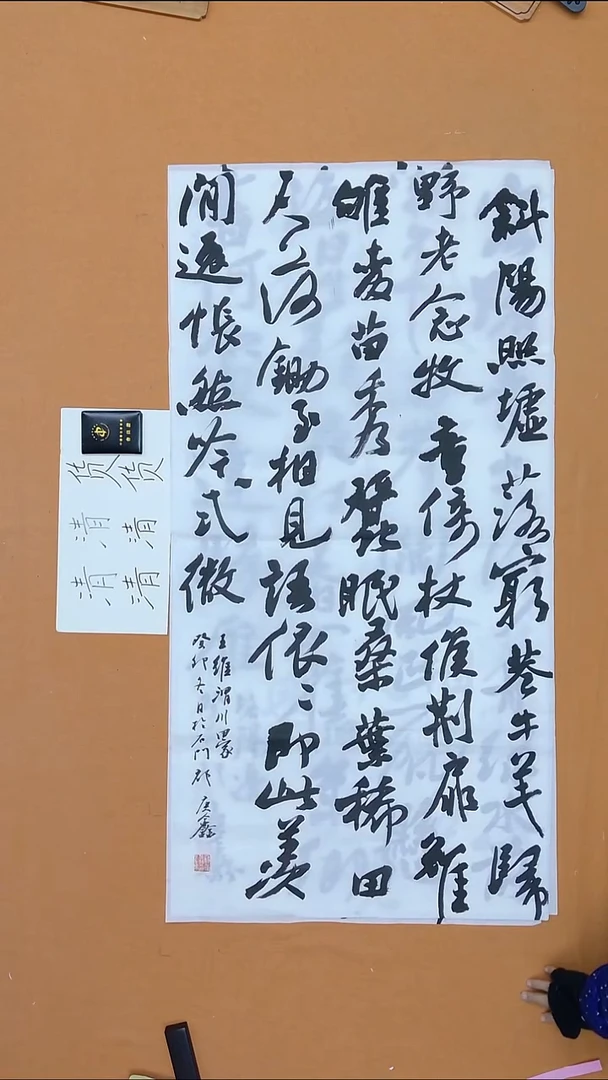 斜陽照墟落窮巷牛羊歸
野老念牧童倚杖候荊扉雉
雊麥苗秀蠶眠桑葉稀田
夫荷鋤至相見語依〻即此羨
閒逸悵然吟式微
王維渭川田家
癸卯冬日於石門
货货
清清
清清